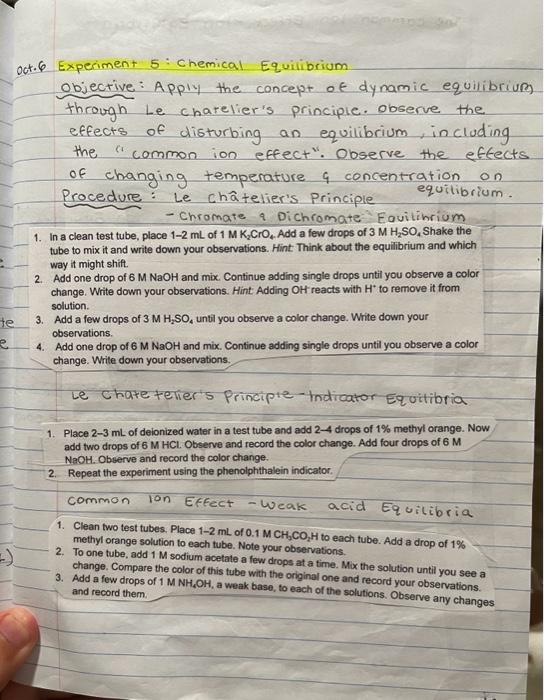 Oct.6 Experiment 5 : Chemical Equilibrium
Objective : Apply the concept of dynamic equilibrium
through Le chatelier's principle. Observe the
effects of disturbing an equilibrium, including
the "common ion effect". Observe the effects
of changing temperature & concentration on
equilibrium.
Procedure : Le châtelier's Principle
- Chromate & Dichromate Equilibrium
1. In a clean test tube, place 1–2 mL of 1 M K₂CrO₄. Add a few drops of 3 M H₂SO₄ Shake the
tube to mix it and write down your observations. Hint: Think about the equilibrium and which
way it might shift.
2. Add one drop of 6 M NaOH and mix. Continue adding single drops until you observe a color
change. Write down your observations. Hint: Adding OH⁻ reacts with H⁺ to remove it from
solution.
3. Add a few drops of 3 M H₂SO₄ until you observe a color change. Write down your
observations.
4. Add one drop of 6 M NaOH and mix. Continue adding single drops until you observe a color
change. Write down your observations.
Le Chatetelier's Principle - Indicator Equilibria
1. Place 2–3 mL of deionized water in a test tube and add 2–4 drops of 1% methyl orange. Now
add two drops of 6 M HCl. Observe and record the color change. Add four drops of 6 M
NaOH. Observe and record the color change.
2. Repeat the experiment using the phenolphthalein indicator.
Common Ion Effect - Weak acid Equilibria
1. Clean two test tubes. Place 1–2 mL of 0.1 M CH₃CO₂H to each tube. Add a drop of 1%
methyl orange solution to each tube. Note your observations.
2. To one tube, add 1 M sodium acetate a few drops at a time. Mix the solution until you see a
change. Compare the color of this tube with the original one and record your observations.
3. Add a few drops of 1 M NH₄OH, a weak base, to each of the solutions. Observe any changes
and record them.